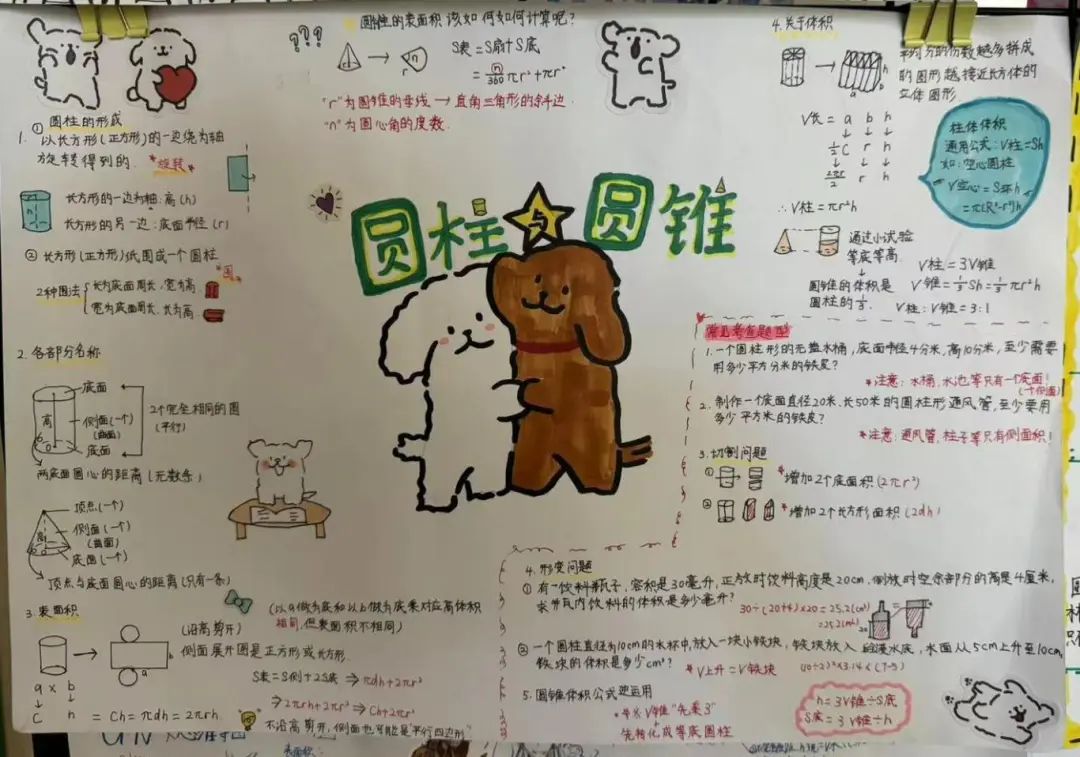 圆柱与圆锥
1. ①圆柱的形成
以长方形(正方形)的一边绕为轴
旋转得到的. *旋转*
长方形的一边为轴:高(h)
长方形的另一边:底面半径(r)
②长方形(正方形)纸围成一个圆柱
*围*
2种围法
长为底面周长,宽为高.
宽为底面周长,长为高.
2. 各部分名称
底面
高
侧面(一个)
(曲面)
底面
2个完全相同的圆
(平行)
两底面圆心的距离(无数条)
顶点(一个)
侧面(一个)
(曲面)
底面(一个)
高
顶点与底面圆心的距离(只有一条)
3. 表面积
(以a做为底和以b做为底来对应高体积
相同,但表面积不相同)
(沿高剪开)
侧面展开图是正方形或长方形.
a
b
a × b
↓ ↓
C h = Ch = πdh = 2πrh
S表 = S侧+2S底 ⇒ πdh+2πr²
⇒ 2πrh+2πr² ⇒ Ch+2πr²
不沿高剪开,侧面也可能是"平行四边形"
???
圆锥的表面积该如何如何计算呢?
S表 = S扇+S底
= n/360 πr²+πr²
"r"为圆锥的母线→直角三角形的斜边.
"n"为圆心角的度数.
4. 关于体积
平均分的份数越多拼成
的图形越接近长方体的
立体图形.
V长 = a b h
↓ ↓ ↓
½C r h
↓ ↓ ↓
2πr/2 r h
∴V柱 = πr²h
柱体体积
通用公式:V柱=Sh
如:空心圆柱
V空心=S环h
=π(R²-r²)h
通过小试验
等底等高.
圆锥的体积是
圆柱的⅓.
V柱 = 3V锥
V锥 = ⅓Sh = ⅓πr²h
V柱:V锥 = 3:1
常见考查题型
1. 一个圆柱形的无盖水桶,底面半径4分米,高10分米,至少需要
用多少平方分米的铁皮?
*注意:水桶,水池等只有一个底面!
(一个侧面)
2. 制作一个底面直径20米,长50米的圆柱形通风管,至少要用
多少平方米的铁皮?
*注意:通风管,柱子等只有侧面积!
3. 切割问题
① *增加2个底面积(2πr²)
② *增加2个长方形面积(2dh)
4. 形变问题
①有一饮料瓶子,容积是30毫升,正放时饮料高度是20cm,倒放时空余部分的高是4厘米,
求瓶内饮料的体积是多少毫升?
30÷(20+4)×20=25.2(cm³)
=25.2(mL)
②一个圆柱直径为10cm的水杯中,放入一块小铁块,铁块放入浸没水底,水面从5cm上升至10cm,
铁块的体积是多少cm³?
*V上升=V铁块
5. 圆锥体积公式逆运用
*将V锥"先乘3"
先转化成等底圆柱
h=3V锥÷S底
S底=3V锥÷h